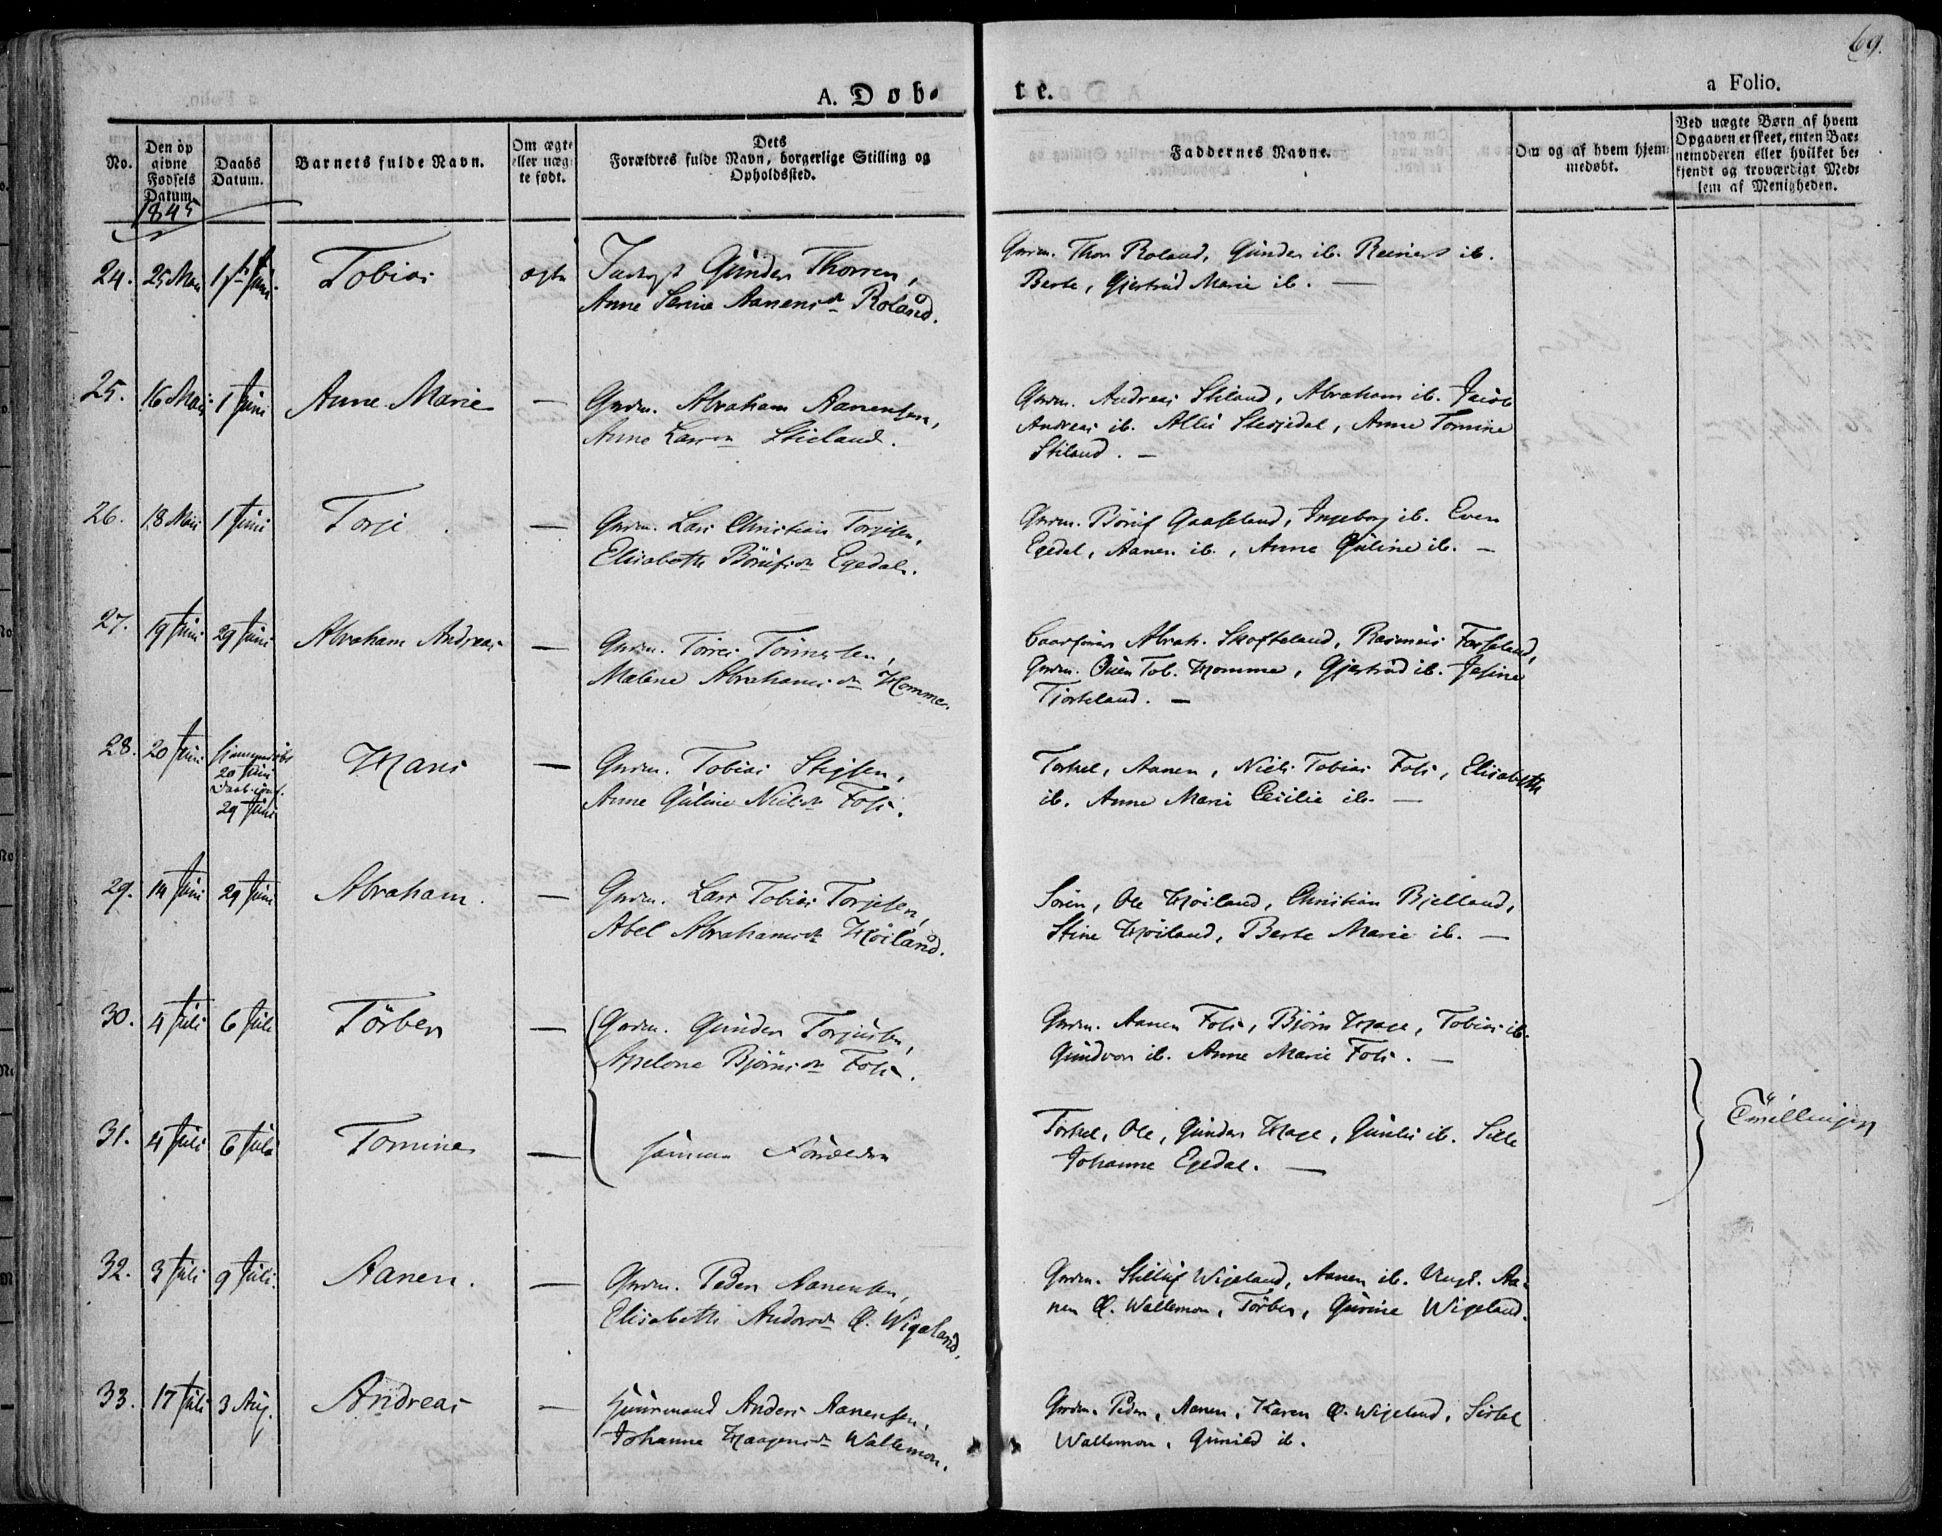 69.
A. Døb-
te.
a Folio.
No.
Den op
givne
Fødsels
Datum.
Daabs
Datum.
Barnets fulde Navn.
Om ægte
eller uæg-
te født.
Dets
Forældres fulde Navn, borgerlige Stilling og
Opholdssted.
Faddernes Navne.
Om og af hvem hjem-
medøbt.
Ved uægte Børn af hvem
Opgaven er skeet, enten Bar-
nemoderen eller hvilket be-
kjendt og troværdigt Med-
lem af Menigheden.
1845
24. 25 Mai 1ste Juni Tobias ægte Gunder Thorsen,
Anne Serine Aanensd. Roland.
Gmdm. Thor Roland, Gunder ib. Reinert ib.
Berte, Gjertrud Marie ib. —
25. 16 Mai 1 Juni Anne Marie — Gmdm. Abraham Aanensen,
Anne Larsd. Stieland.
Gmdm. Andreas Stiland, Abraham ib. Jacob
Andreas ib. Anne Tomine
Stiland. —
26. 18 Mai 1 Juni Torje — Gmdm. Lars Christian Torjesen,
Elisabeth Börufsd. Egedal.
Gmdm. Böruf Gaaseland, Ingeborg ib. Even
Egedal, Aanen ib., Anne Guline ib. —
27. 19 Juni 29 Juni Abraham Andreas — Gmdm. Tönnesen,
Malene Abrahamsd. Homme.
Abrah. Skofteland, Rasmus
Gmdm. Ouen Tob. Homme, Gjertrud ib. Jesine
Tjorteland. —
28. 20 Juni Hjemmedöbt
20 Juni
29 Juni
Hans — Gmdm. Tobias Stigsen,
Anne Guline Nielsd. Foss.
Torkel, Aanen, Niels Tobias Foss, Elisabeth
ib. Anne Marie Cecilie ib. —
29. 14 Juni 29 Juni Abraham. — Gmdm. Lars Tobias Torjesen,
Abel Abrahamsd. Höiland.
Sören, Ole Höiland, Christian Bjelland,
Stine Höiland, Berte Marie ib. —
30. 4 Juli 6 Juli Törber — Gmdm. Gunder Torjusen,
Apelone Björnsd. Foss.
Gmdm. Aanen Foss, Björn Hage, Tobias ib.
Gundvor ib. Anne Marie Foss. —
31. 4 Juli 6 Juli Tomine — samme Forældre
Torkel, Ole, Gunder Hage, ib. Sille
Johanne Egedal. —
Tvillinger
32. 3 Juli 9 Juli. Aanen. — Gmdm. Peder Aanensen,
Elisabeth Andersd. Ö. Wigeland.
Gmdm. Stilluf Wigeland, Aanen ib. Ungk. Aa-
nen Ö. Wallemon, Törber, Gurine Wigeland.
33. 17 Juli 3 Aug. Andreas — Huusmand Anders Aanensen,
Johanne Haagensd. Wallemon.
Gmdm. Peder, Aanen, Karen Ö. Wigeland, Sissel
Wallemon, Gunild ib.